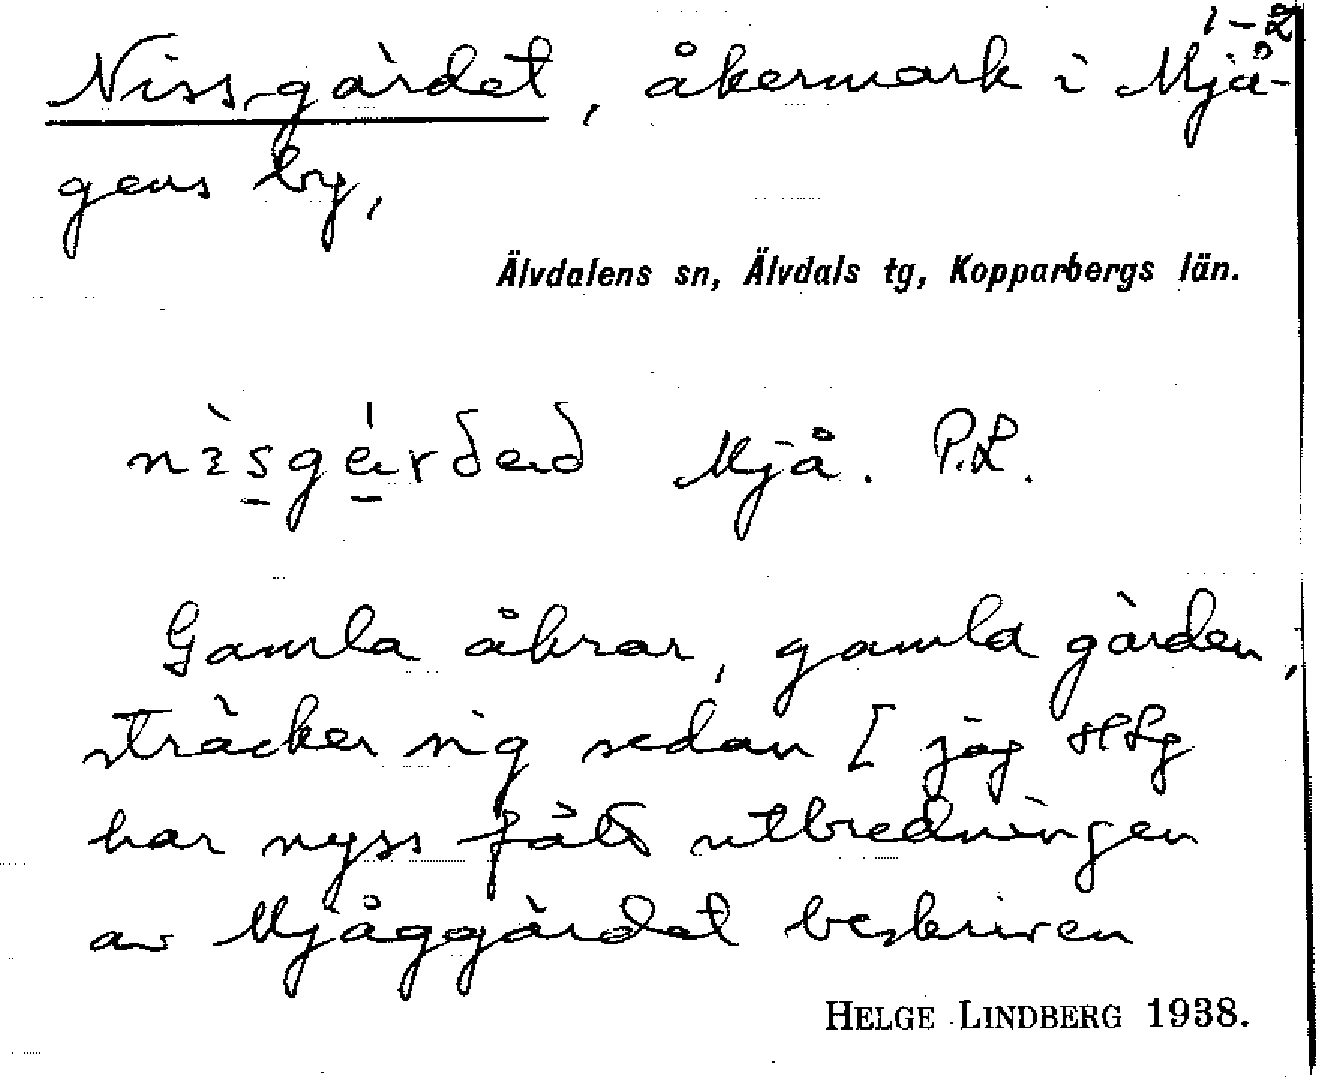 1-2
Nissgärdet, åkermark i Mjå-
gens by,
Älvdalens sn, Älvdals tg, Kopparbergs län.
Mjå. P.L.
Gamla åkrar, gamla gärden,
sträcker sig sedan [ jag HLg
har nyss fått utbredningen
av Mjåggärdet beskriven
HELGE LINDBERG 1938.